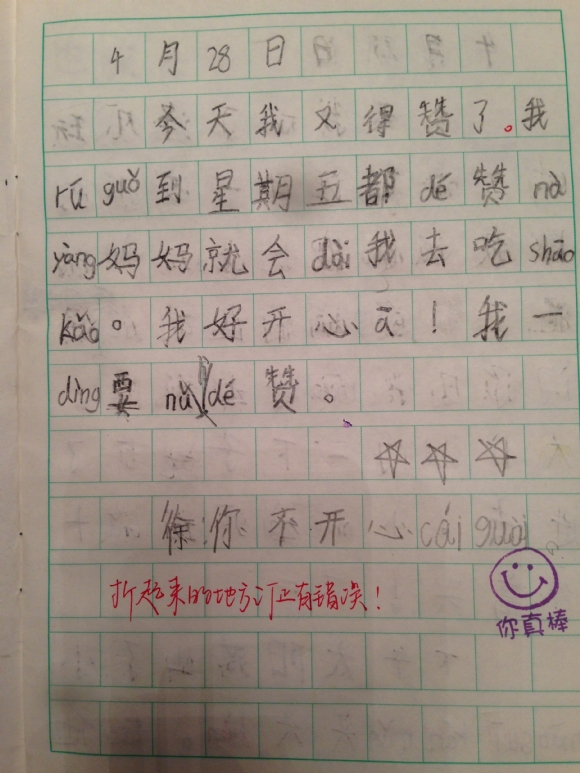 4月28日
今天我又得赞了。我
rú guǒ到星期五都dé赞nà
yàng妈妈就会dài我去吃shāo
kǎo。我好开心ā！我一
dìng要nǔ dé赞。
☆☆☆
徐你不开心cái guài
折起来的地方订正有错误！
你真棒